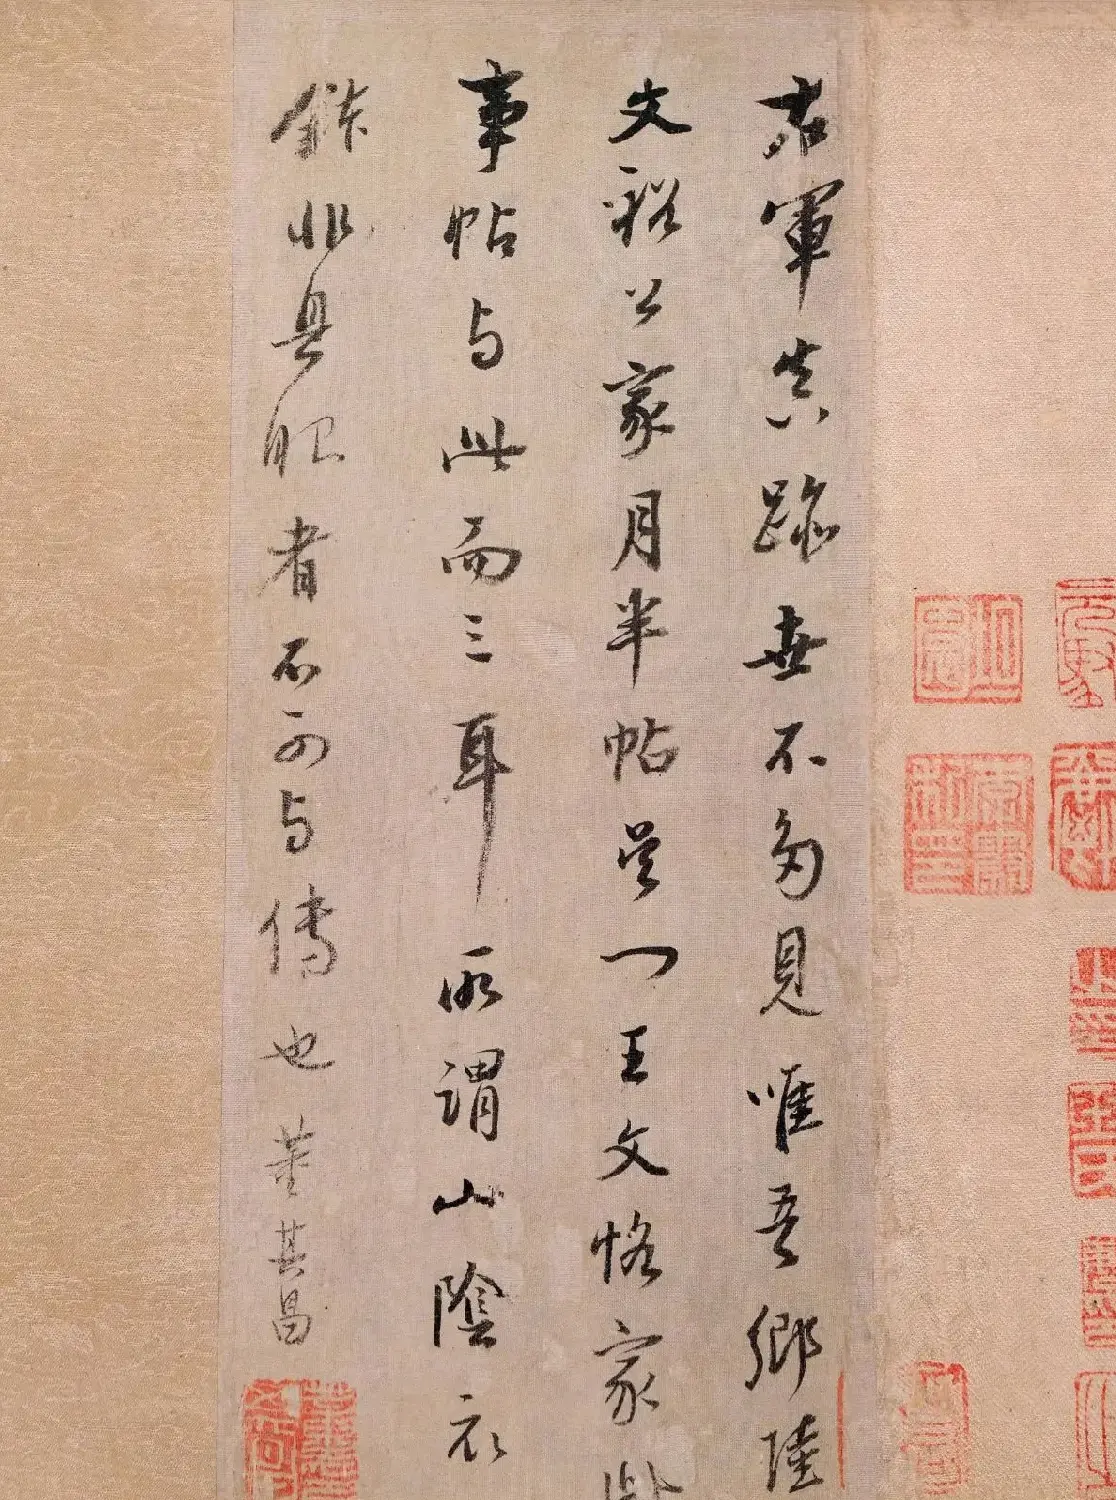 右軍真跡世不多見唯吾鄉陸
文裕公家月半帖吳門王文恪家
事帖与此而三耳所謂山陰衣
鉢非具眼者不可与傳也董其昌